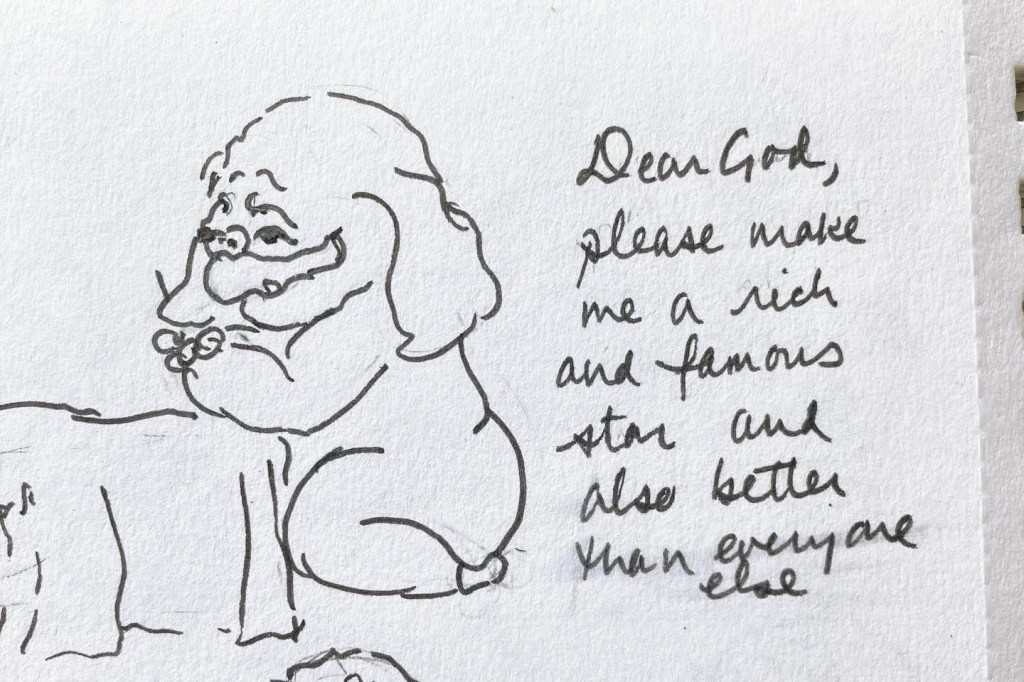 Dear God,
please make
me a rich
and famous
star and
also better
than everyone
else